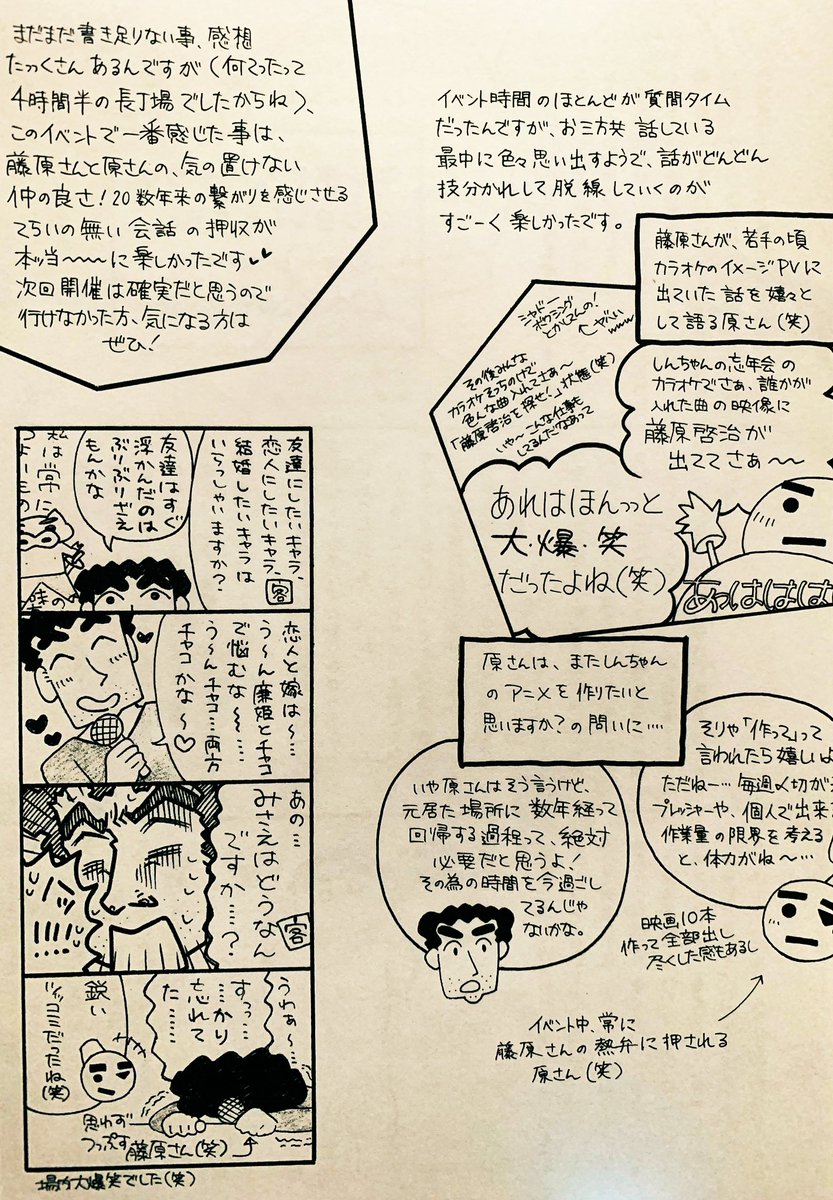 イベント時間のほとんどが質問タイム
だったんですが、お三方共話している
最中に色々思い出すようで、話がどんどん
技分かれして脱線していくのが
すごーく楽しかったです。
藤原さんが、若手の頃
カラオケのイメージPVに
出ていた話を嬉々と
して語る原さん(笑)
しんちゃんの忘年会の
カラオケでさぁ、誰かが
入れた曲の映像に
藤原啓治が
出ててさぁ〜〜
シャドー
ボクシング
とかしてんの!
←ヤバいwww
その後みんな
カラオケそっちのけで
色んな曲入れてさぁ〜
「藤原啓治を探せ!」状態(笑)
いや〜こんな仕事も
してるんだなあって
あれはほんっっと
大・爆・笑
だったよね(笑)
あっはははは
原さんは、またしんちゃん
のアニメを作りたいと
思いますか?の問いに……
そりゃ「作って」って
言われたら嬉しいよ
ただねー…毎週〆切が
プレッシャーや、個人で出来
作業量の限界を考える
と、体力がね〜…
映画10本
作って全部出し
尽くした感もあるし
いや原さんはそう言うけど、
元居た場所に数年経って
回帰する過程って、絶対
必要だと思うよ!
その為の時間を今過ごし
てるんじゃ
ないかな。
イベント中、常に
藤原さんの熱弁に押される
原さん(笑)
まだまだ書き足りない事、感想
たっくさんあるんですが(何てったって
4時間半の長丁場でしたからね)、
このイベントで一番感じた事は、
藤原さんと原さんの、気の置けない
仲の良さ!20数年来の繋がりを感じさせる
てらいの無い会話の押収が
本当〜〜〜に楽しかったです♥♥
次回開催は確実だと思うので
行けなかった方、気になる方は
ぜひ!
友達にしたいキャラ、
恋人にしたいキャラ、
結婚したいキャラは
いらっしゃいますか?
客
友達はすぐ
浮かんだのは
ぶりぶりざえ
もんかな
私は常に
つよーもの
味の
恋人と嫁は〜…
う〜ん廉姫とチャコ
で悩むな〜〜…
う〜んチャコ…両方
チャコかな〜♡
あの…
みさえはどうなん
ですか……?
客
ハッ
!!!!
うわぁ〜…
すっっ…
…かり
忘れて
た……
鋭い
ツッコミだったね
(笑)
思わず
つっぷす
藤原さん(笑)
場内大爆笑でした(笑)